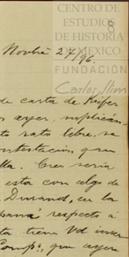 CENTRO DE
ESTUDIOS
DE HISTORIA
DE MÉXICO
FUNDACIÓN
Carlos Slim
Novbre 27/96.
de carta de Keifer
ayer, suplican
rato lebre, sa
contestacion gra
lla. Creo seria
esta con algo de
Durand, en la
bana respecto á
tu tiene Vd inver
Compª, que ayer